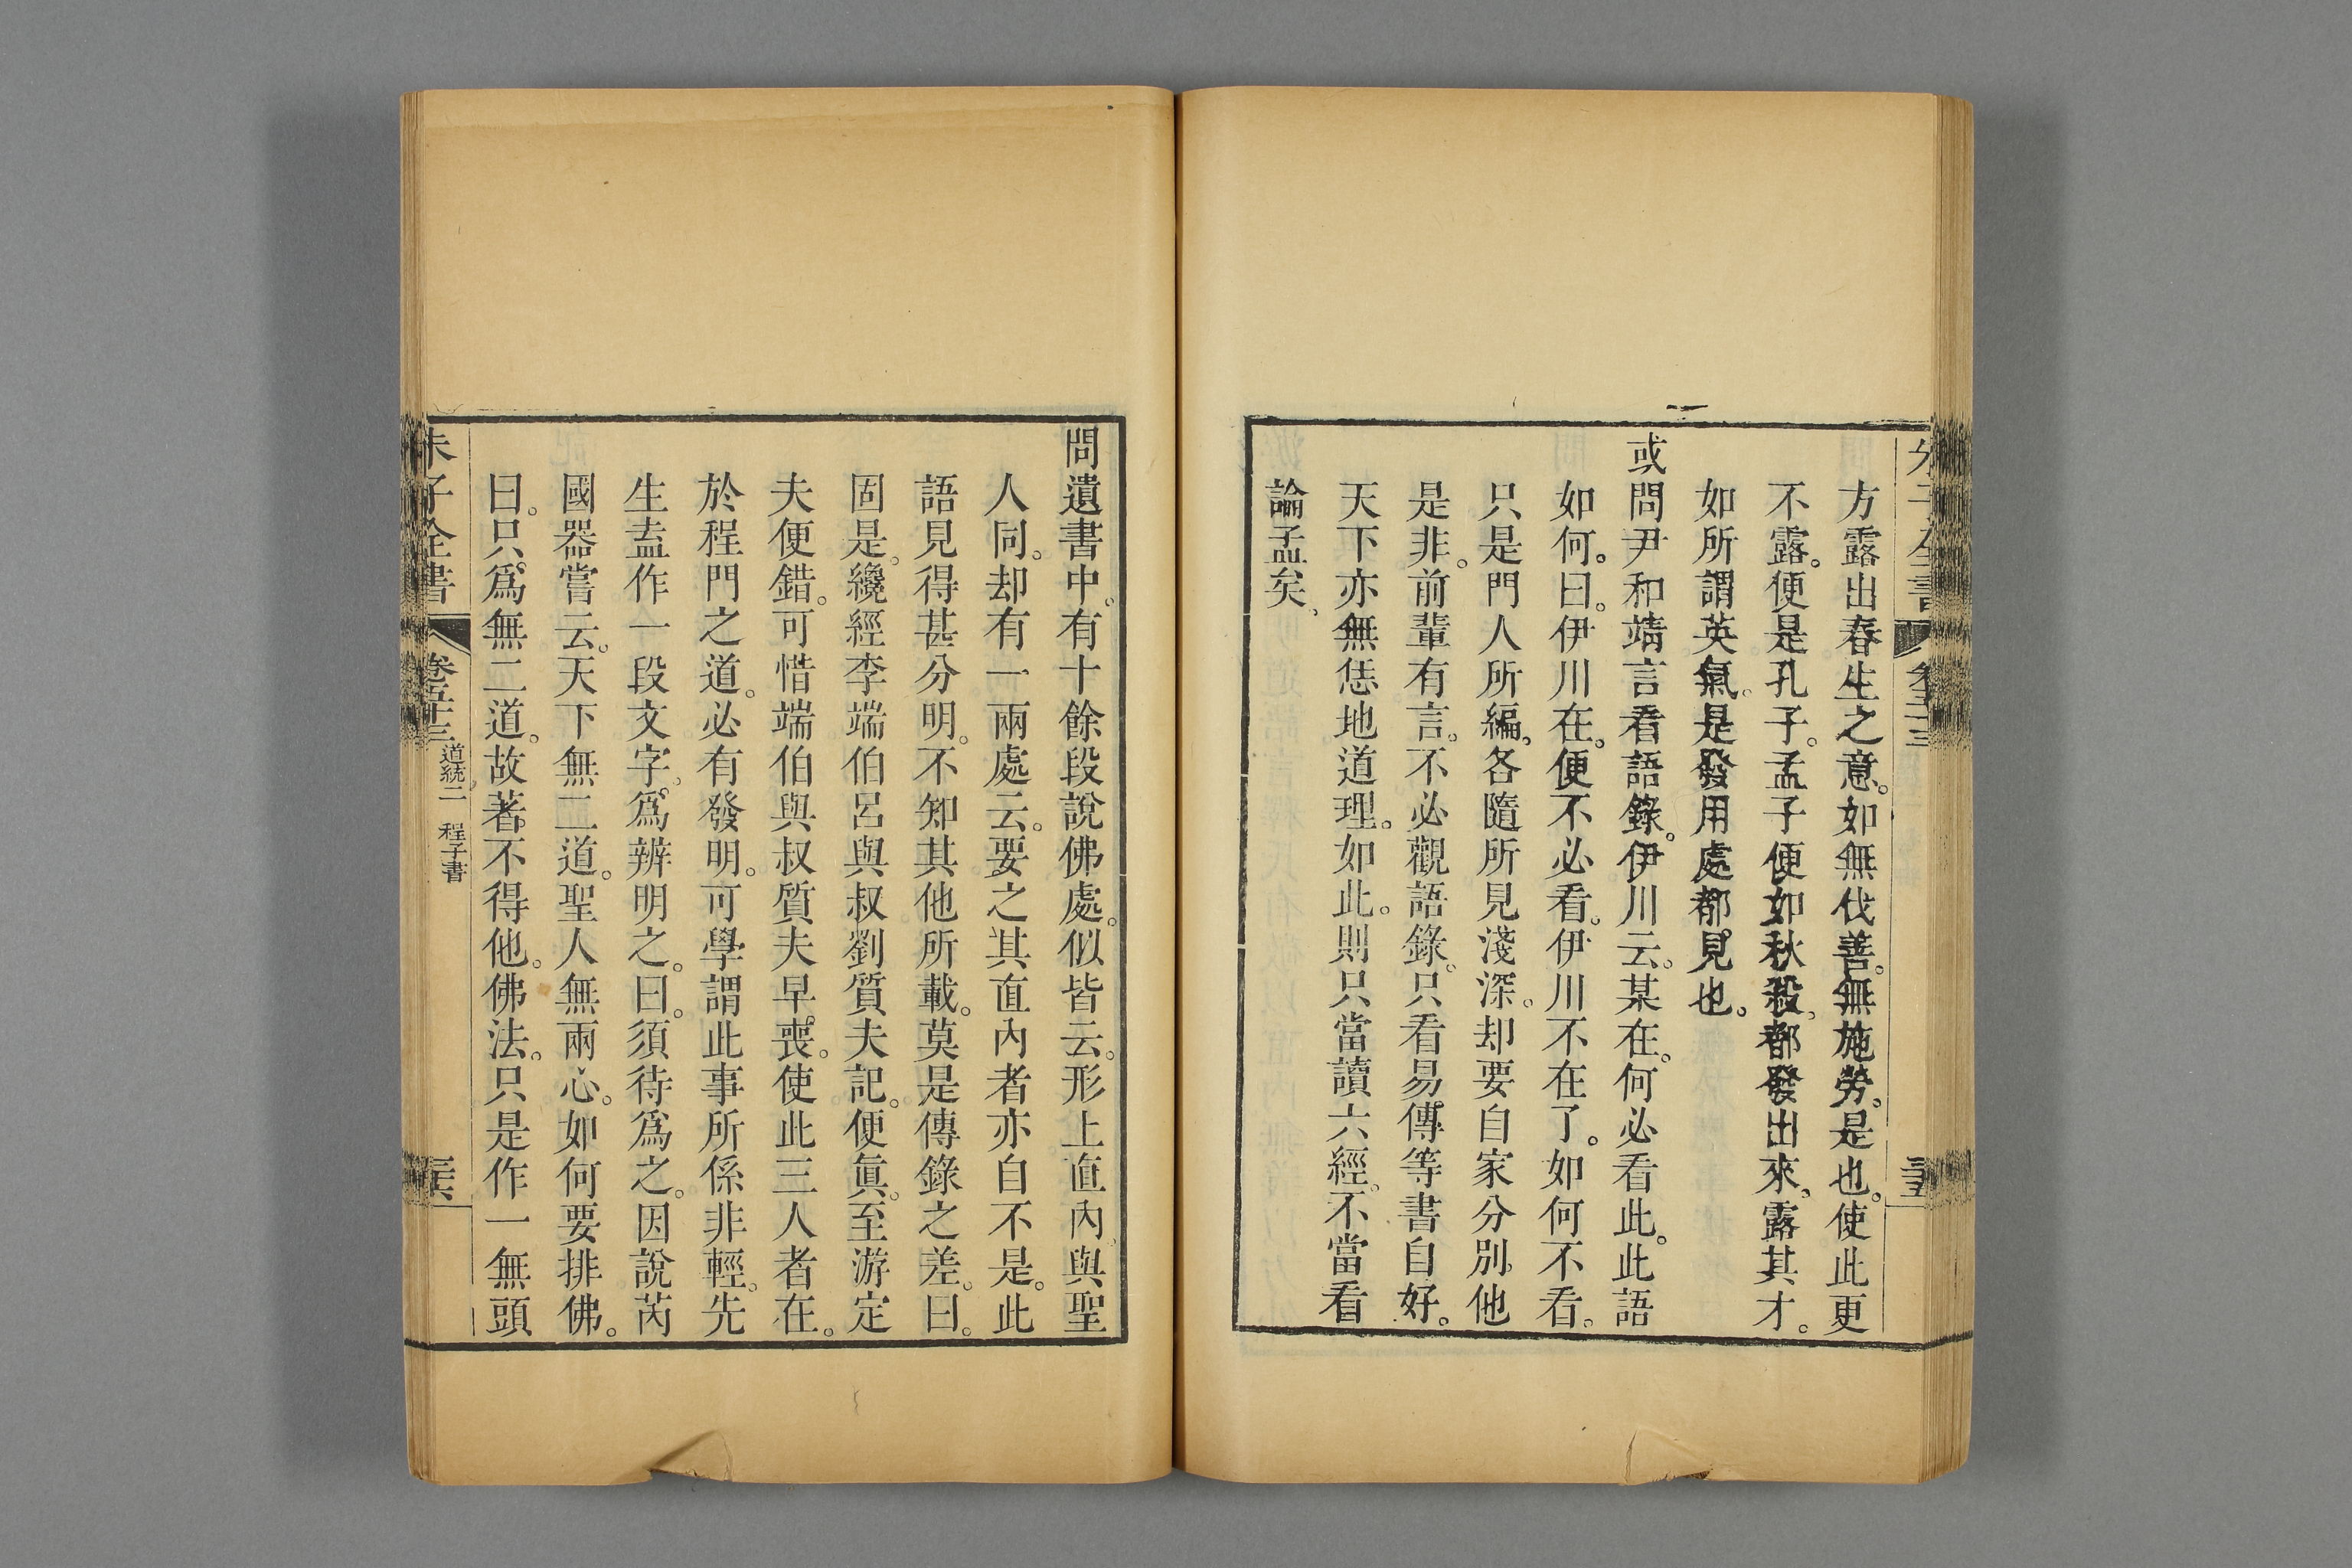 方露出春生之意。如無伐善。無施勞。是也。使此更
不露。便是孔子。孟子便如秋殺。都發出來。露其才。
如所謂英氣。是發用處都見也。
或問尹和靖言看語錄。伊川云。某在。何必看此。此語
如何。曰。伊川在。便不必看。伊川不在了。如何不看。
只是門人所編。各隨所見淺深。却要自家分別他
是非。前輩有言。不必觀語錄。只看易傳等書自好。
天下亦無恁地道理。如此。則只當讀六經。不當看
論孟矣。
問遺書中。有十餘段說佛處。似皆云。形上直內。與聖
人同。却有一兩處云。要之其直內者亦自不是。此
語見得甚分明。不知其他所載。莫是傳錄之差。曰。
固是。纔經李端伯呂與叔劉質夫記。便眞。至游定
夫便錯。可惜端伯與叔質夫早喪。使此三人者在。
於程門之道。必有發明。可學謂此事所係非輕。先
生盍作一段文字。爲辨明之。曰。須待爲之。因說芮
國器嘗云。天下無二道。聖人無兩心。如何要排佛。
曰。只爲無二道。故著不得他。佛法。只是作一無頭
朱子全書
卷五十三
道統二 程子書